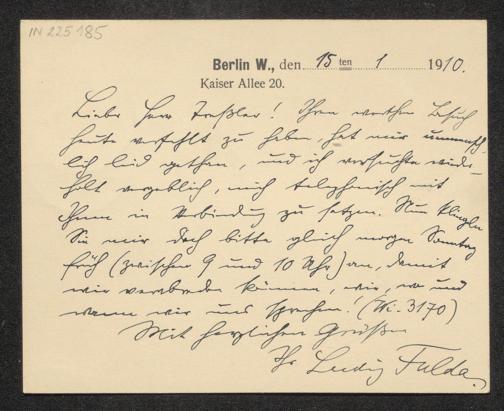 IN 225185
Berlin W., den 15ten 1 1910.
Kaiser Allee 20.
Lieber Herr Treßler! Ihren werthen Besuch
heute verfehlt zu haben, hat mir unmensch-
lich leid gethan, und ich versuchte wieder-
holt vergeblich, mich telephonisch mit
Ihnen in Verbindung zu setzen. Nun klingeln
Sie mir doch bitte gleich morgen Sonntag
früh (zwischen 9 und 10 Uhr) an, damit
wir verabreden können, wie, wo und
wann wir uns sprechen! (Wi. 3170)
Mit herzlichen Grüßen
Ihr Ludwig Fulda.